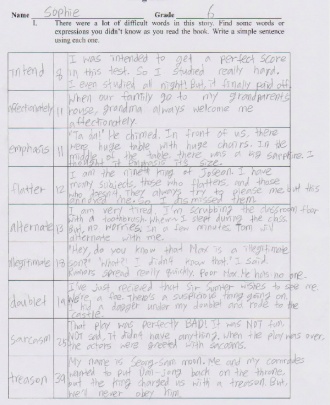 Name Sophie Grade 6
1. There were a lot of difficult words in this story. Find some words or
expressions you didn't know as you read the book. Write a simple sentence
using each one.
intend 8 I was intended to get a perfect score
in this test. So I studied really hard.
I even studied all night! But, it finally paid off.
affectionately 11 When our family go to my grandparents
house, grandma always welcome me
affectionately.
emphasis 11 "Ta da!" He chimed. In front of us, there
were huge table with huge chairs. In the
middle of the table, there was a big sapphire. I
its size.
flatter 12 I am the ninth king of Joseon. I have
many subjects, those who flatters, and those
who doesn't. They always try to please me, but this
annoyed me. So I dismissed them.
alternate 13 I am very tired. I'm scrubbing the classroom floor
with a toothbrush. I slept during the class.
But, no worries. In a few minutes Tom will
alternate with me.
illegitimate 18 "Hey, do you know that Max is a illegitimate
son?" "What? I didn't know that." I said.
Rumors spread really quickly. Poor Max. He has no one.
doublet 19 I've just recieved that Sir Sumner wishes to see me.
There's a suspicious going on.
I hid a dagger under my doublet and rode to the
castle.
sarcasm 25 That play was perfectly BAD! It was NOT fun,
NOT sad. It didn't have anything. When the play was over,
the actors were greeted with sarcasms.
treason 39 My name is Seong-Sam moon. Me and my comrades
wanted to put Dan-Jong back on the throne,
but the king charged us with a treason. But,
we'll never obey him.